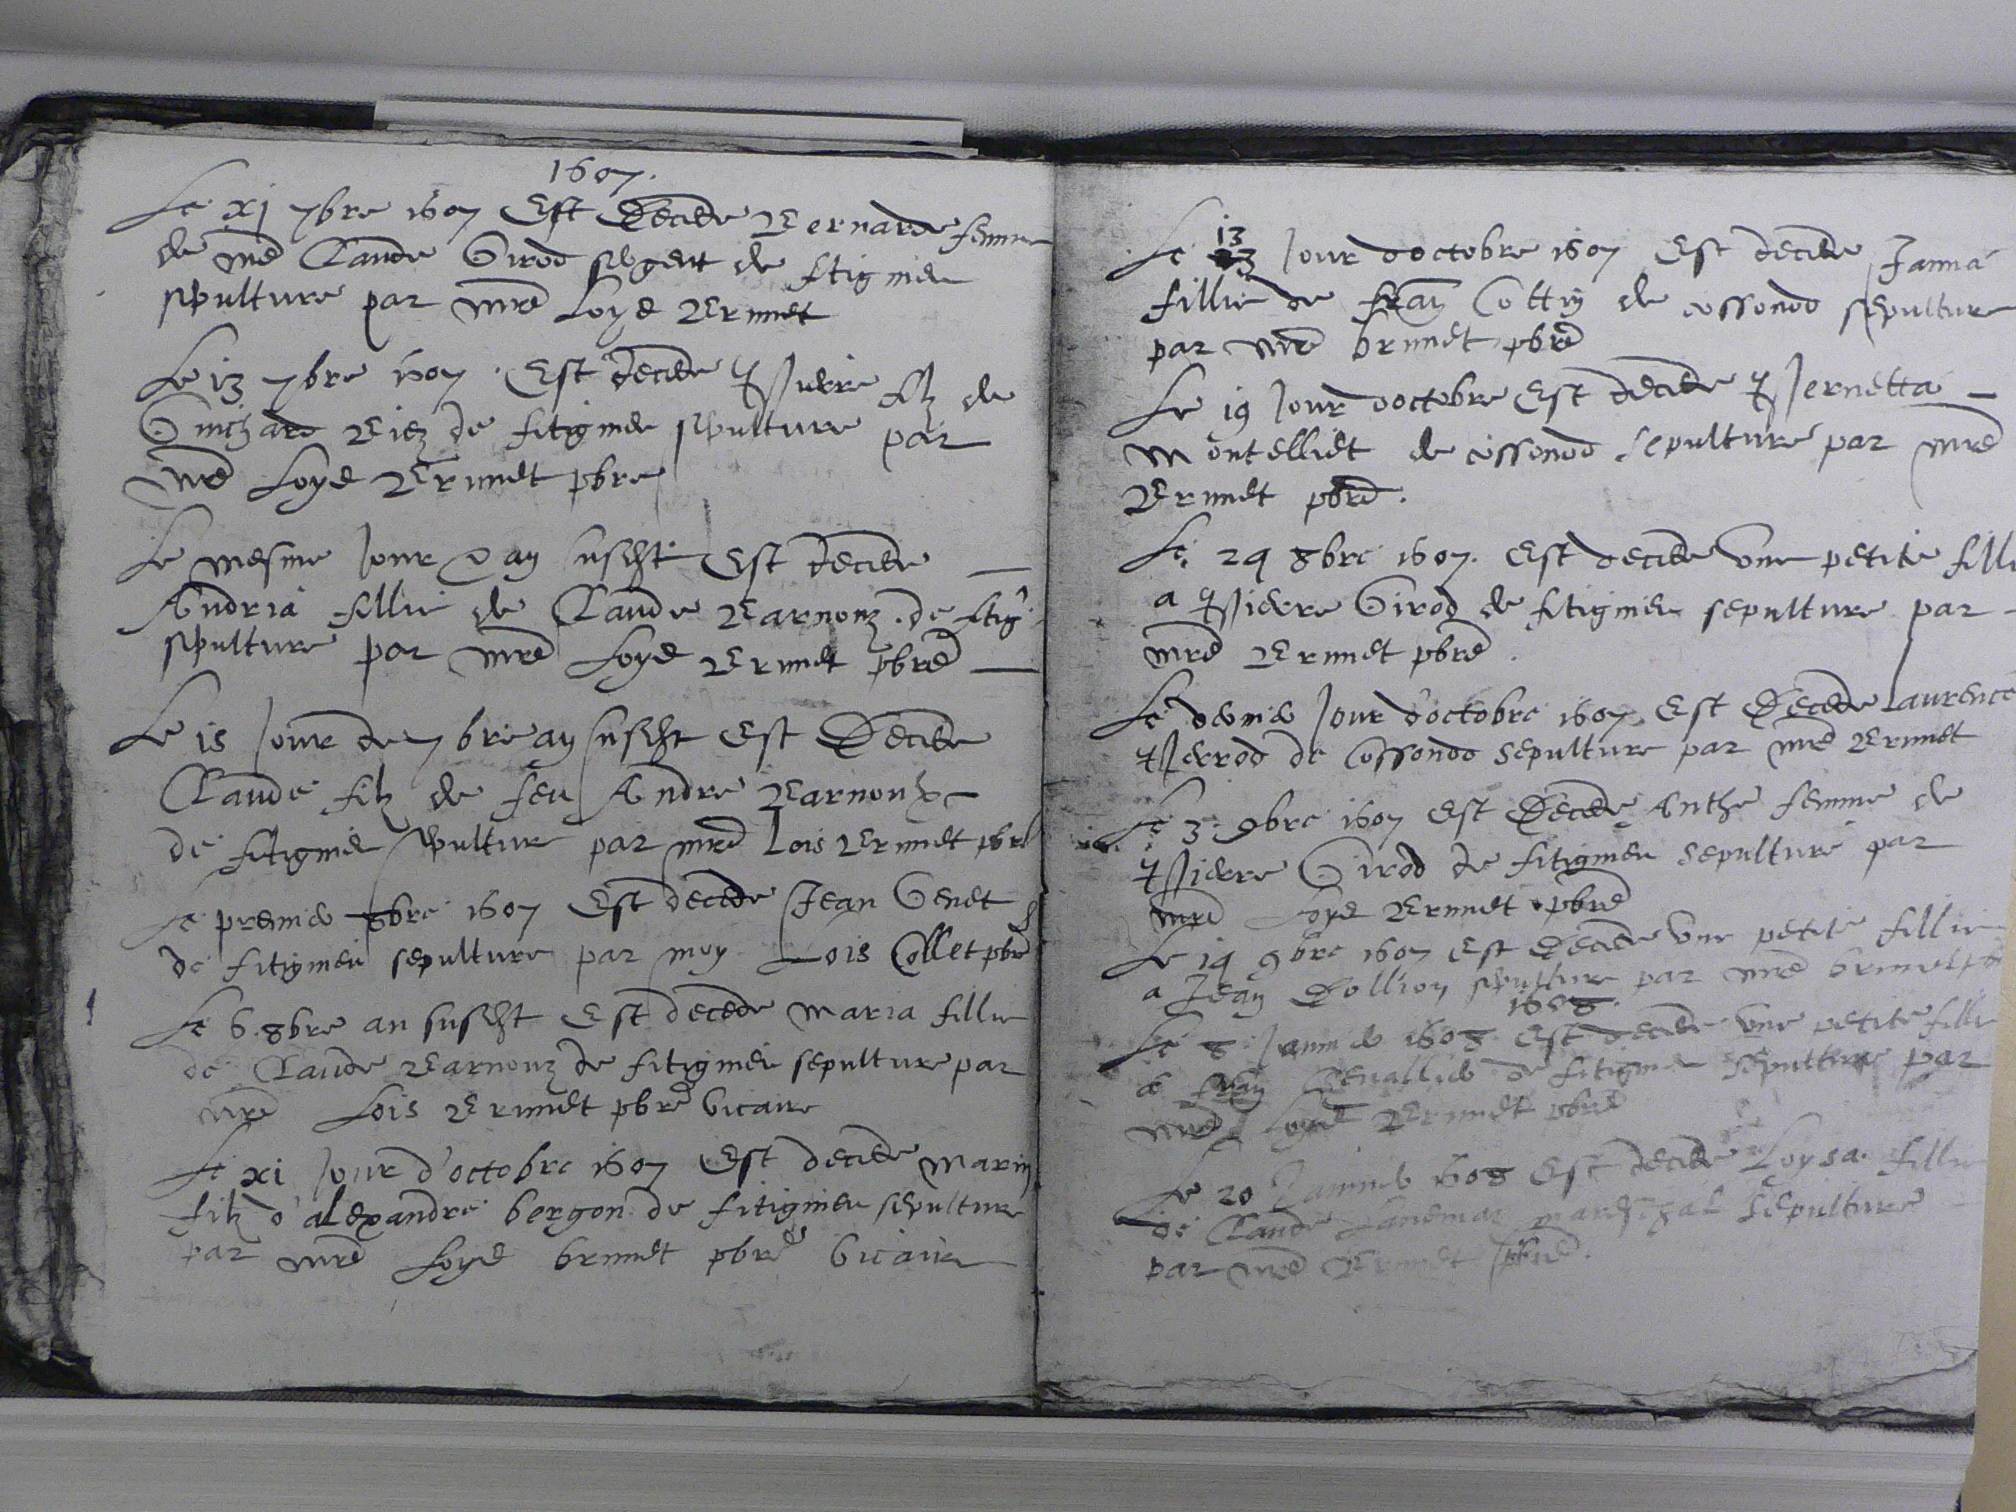 1607.
Le xj 7bre 1607 Est Decede Bernarde femme
de me Claude Girod sergent de fitignieu
sepulture par mre Loys Brunet
Le 13 7bre 1607. Est decede Pierre filz de
Guichard de fitignieu sepulture par
mre Loys Brunet pbre
Le mesme Jour & an suscht Est decede
Andria fillie de Claude Barnouz. de fitig
sepulture par mre Loys Brunet pbre
Le 15 Jour de 7bre an suscht Est Decede
Claude filz de feu Andre Barnoux
de fitignieu sepulture par mre Lois Brunet pbre
Le premier 8bre 1607 Est decede Jean Genet
de fitignieu sepulture par moy Lois Collet pbre
Le 6. 8bre an suscht Est decede Maria fillie
de Claude Barnouz de fitignieu sepulture par
mre Lois Brunet pbre vicaire
Le xi Jour d'octobre 1607 Est decede Marin
filz d'alexandre bergon de fitignieu sepulture
par mre Loys brunet pbre vicaire
Le 13 Jour doctobre 1607 Est decede Janna
fillie de fran Cottin de cossonod sepulture
par mre brunet pbre
Le 19 Jour doctobre Est decede Pernetta
Montelliet de cossonod sepulture par mre
Brunet pbre.
Le 29 8bre 1607. Est decede une petite filli
a Pierre Girod de fitignieu sepulture par
mre Brunet pbre.
Le dernier Jour d'octobre 1607 Est Decede Laurence
Perrod de Cossonod sepulture par mre Brunet
Le 3. 9bre 1607 Est Decede Anthe femme de
Pierre Girod de fitignieu sepulture par
mre Loys Brunet pbre
Le 19 9bre 1607 Est Decede une petite fillie
a Jean Dollion sepulture par mre brunet
1608.
Le 8 Janvier 1608 Est decede une petite filli
a fran Chevallier de fitignieu sepulture par
mre Loys Brunet pbre
Le 20 Janvier 1608 Est decede Loysa fillie
de Claude mareschal sepulture
par mre Brunet pbre.